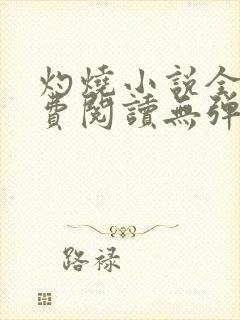 灼燒小說全
費閱讀無彈
路祿